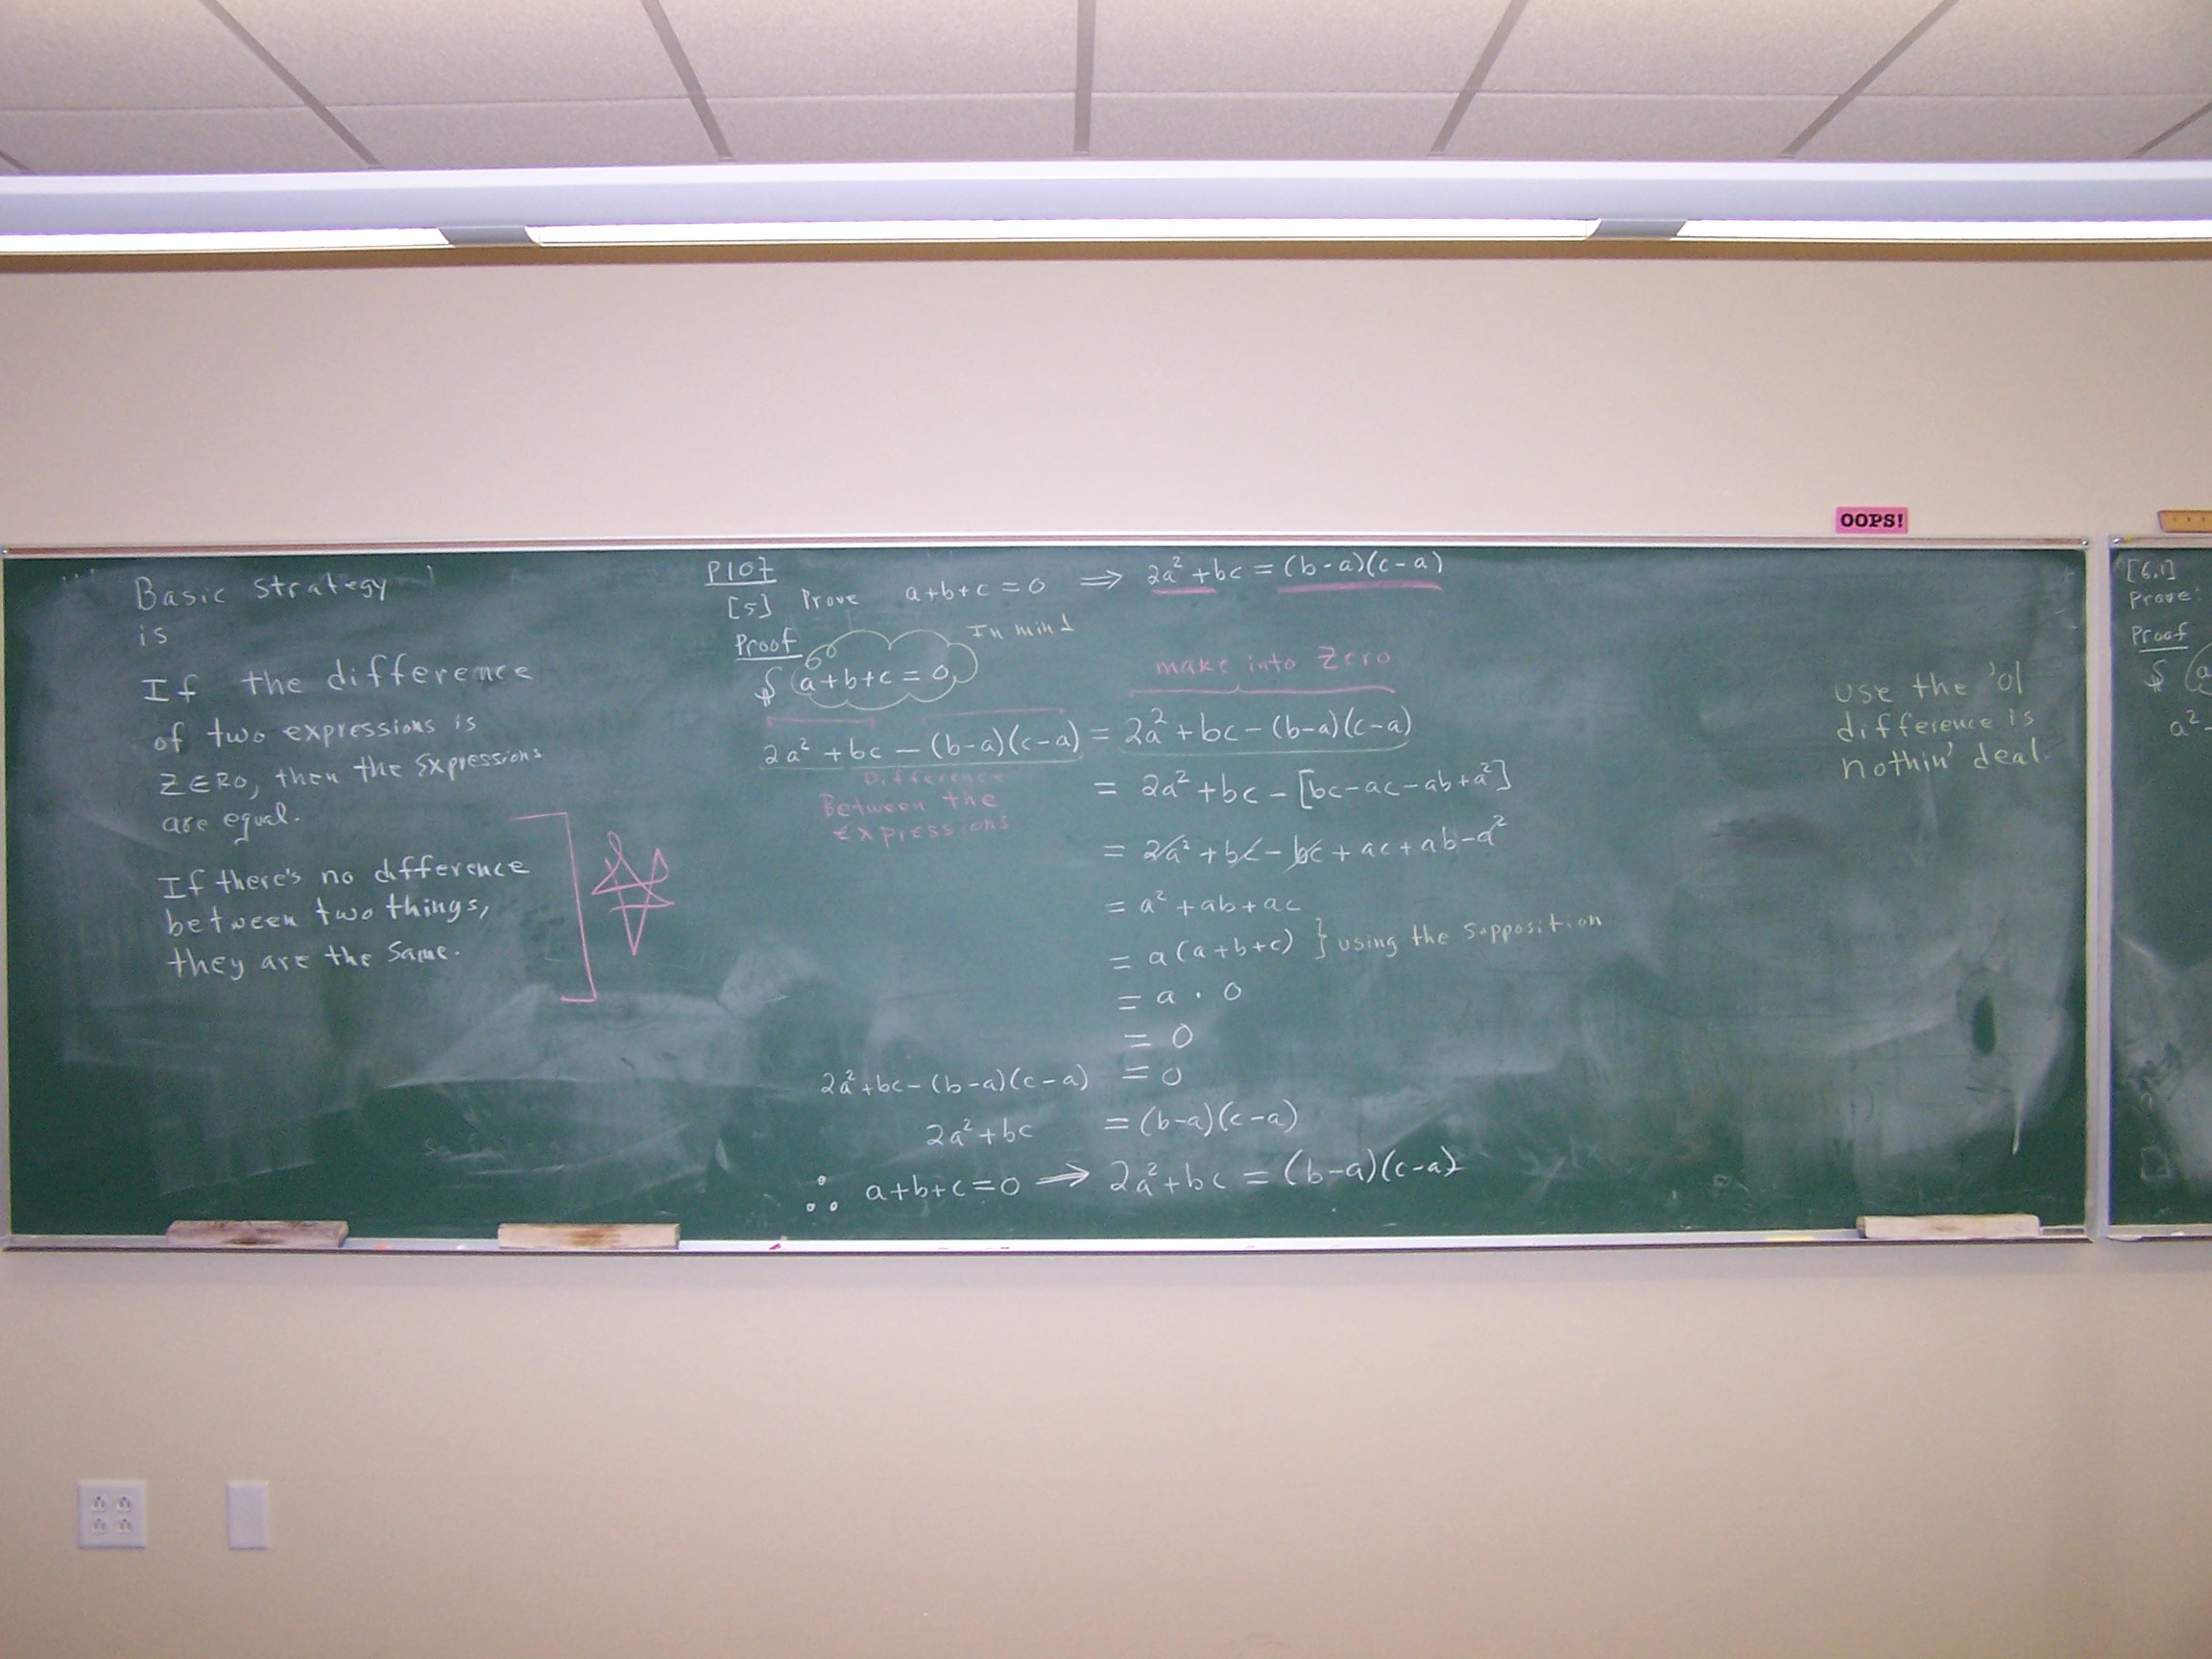 OOPS!
Basic Strategy
is
If the difference
of two expressions is
ZERO, then the Expressions
are equal.
If there's no difference
between two things,
they are the same.
P107
[5] Prove a+b+c=0 ⇒ 2a²+bc=(b-a)(c-a)
Proof
In mind
$ a+b+c=0
make into Zero
2a²+bc-(b-a)(c-a) = 2a²+bc-(b-a)(c-a)
Difference
Between the
Expressions
= 2a²+bc-[bc-ac-ab+a²]
= 2a²+bc-bc+ac+ab-a²
= a²+ab+ac
= a(a+b+c) } using the sopposition
= a · 0
= 0
2a²+bc-(b-a)(c-a) = 0
2a²+bc = (b-a)(c-a)
∴ a+b+c=0 ⇒ 2a²+bc=(b-a)(c-a)
use the 'ol
difference is
nothin' deal.
[6.1]
Prove:
Proof
$ (a
a²-